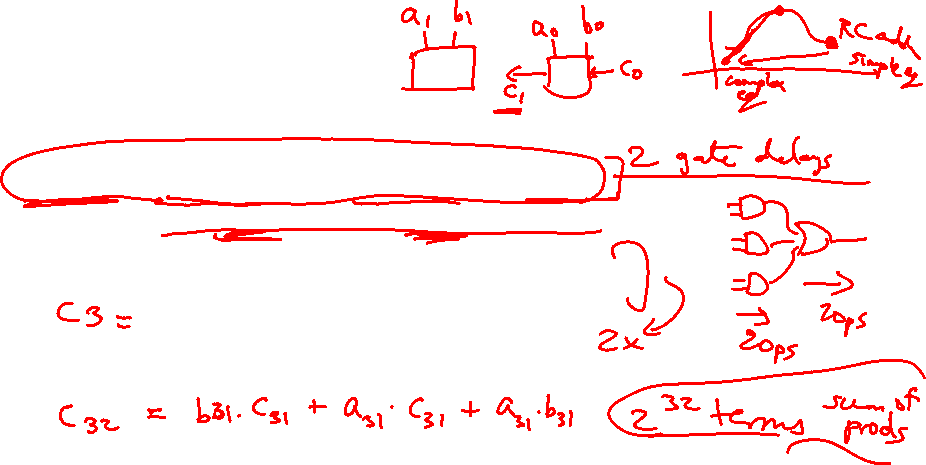 a1 b1
a0 b0
c1
c0
RC add
simple eq
complex eq
2 gate delays
20ps
20ps
2x
C3 =
C32 = b31.C31 + a31.C31 + a31.b31
2^32 terms
sum of prods